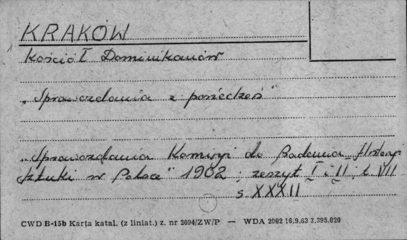 KRAKÓW
Kościół Dominikanów
"Sprawozdania z posiedzeń"
"Sprawozdania Komisyi do Badania Historyi
Sztuki w Polsce" 1902, zeszyt I i II, t. VII
s XXXII
CWD B-15b Karta katal. (z liniat.) z. nr 2694/ZW/P — WDA 2002 16.9.63 2.395.020